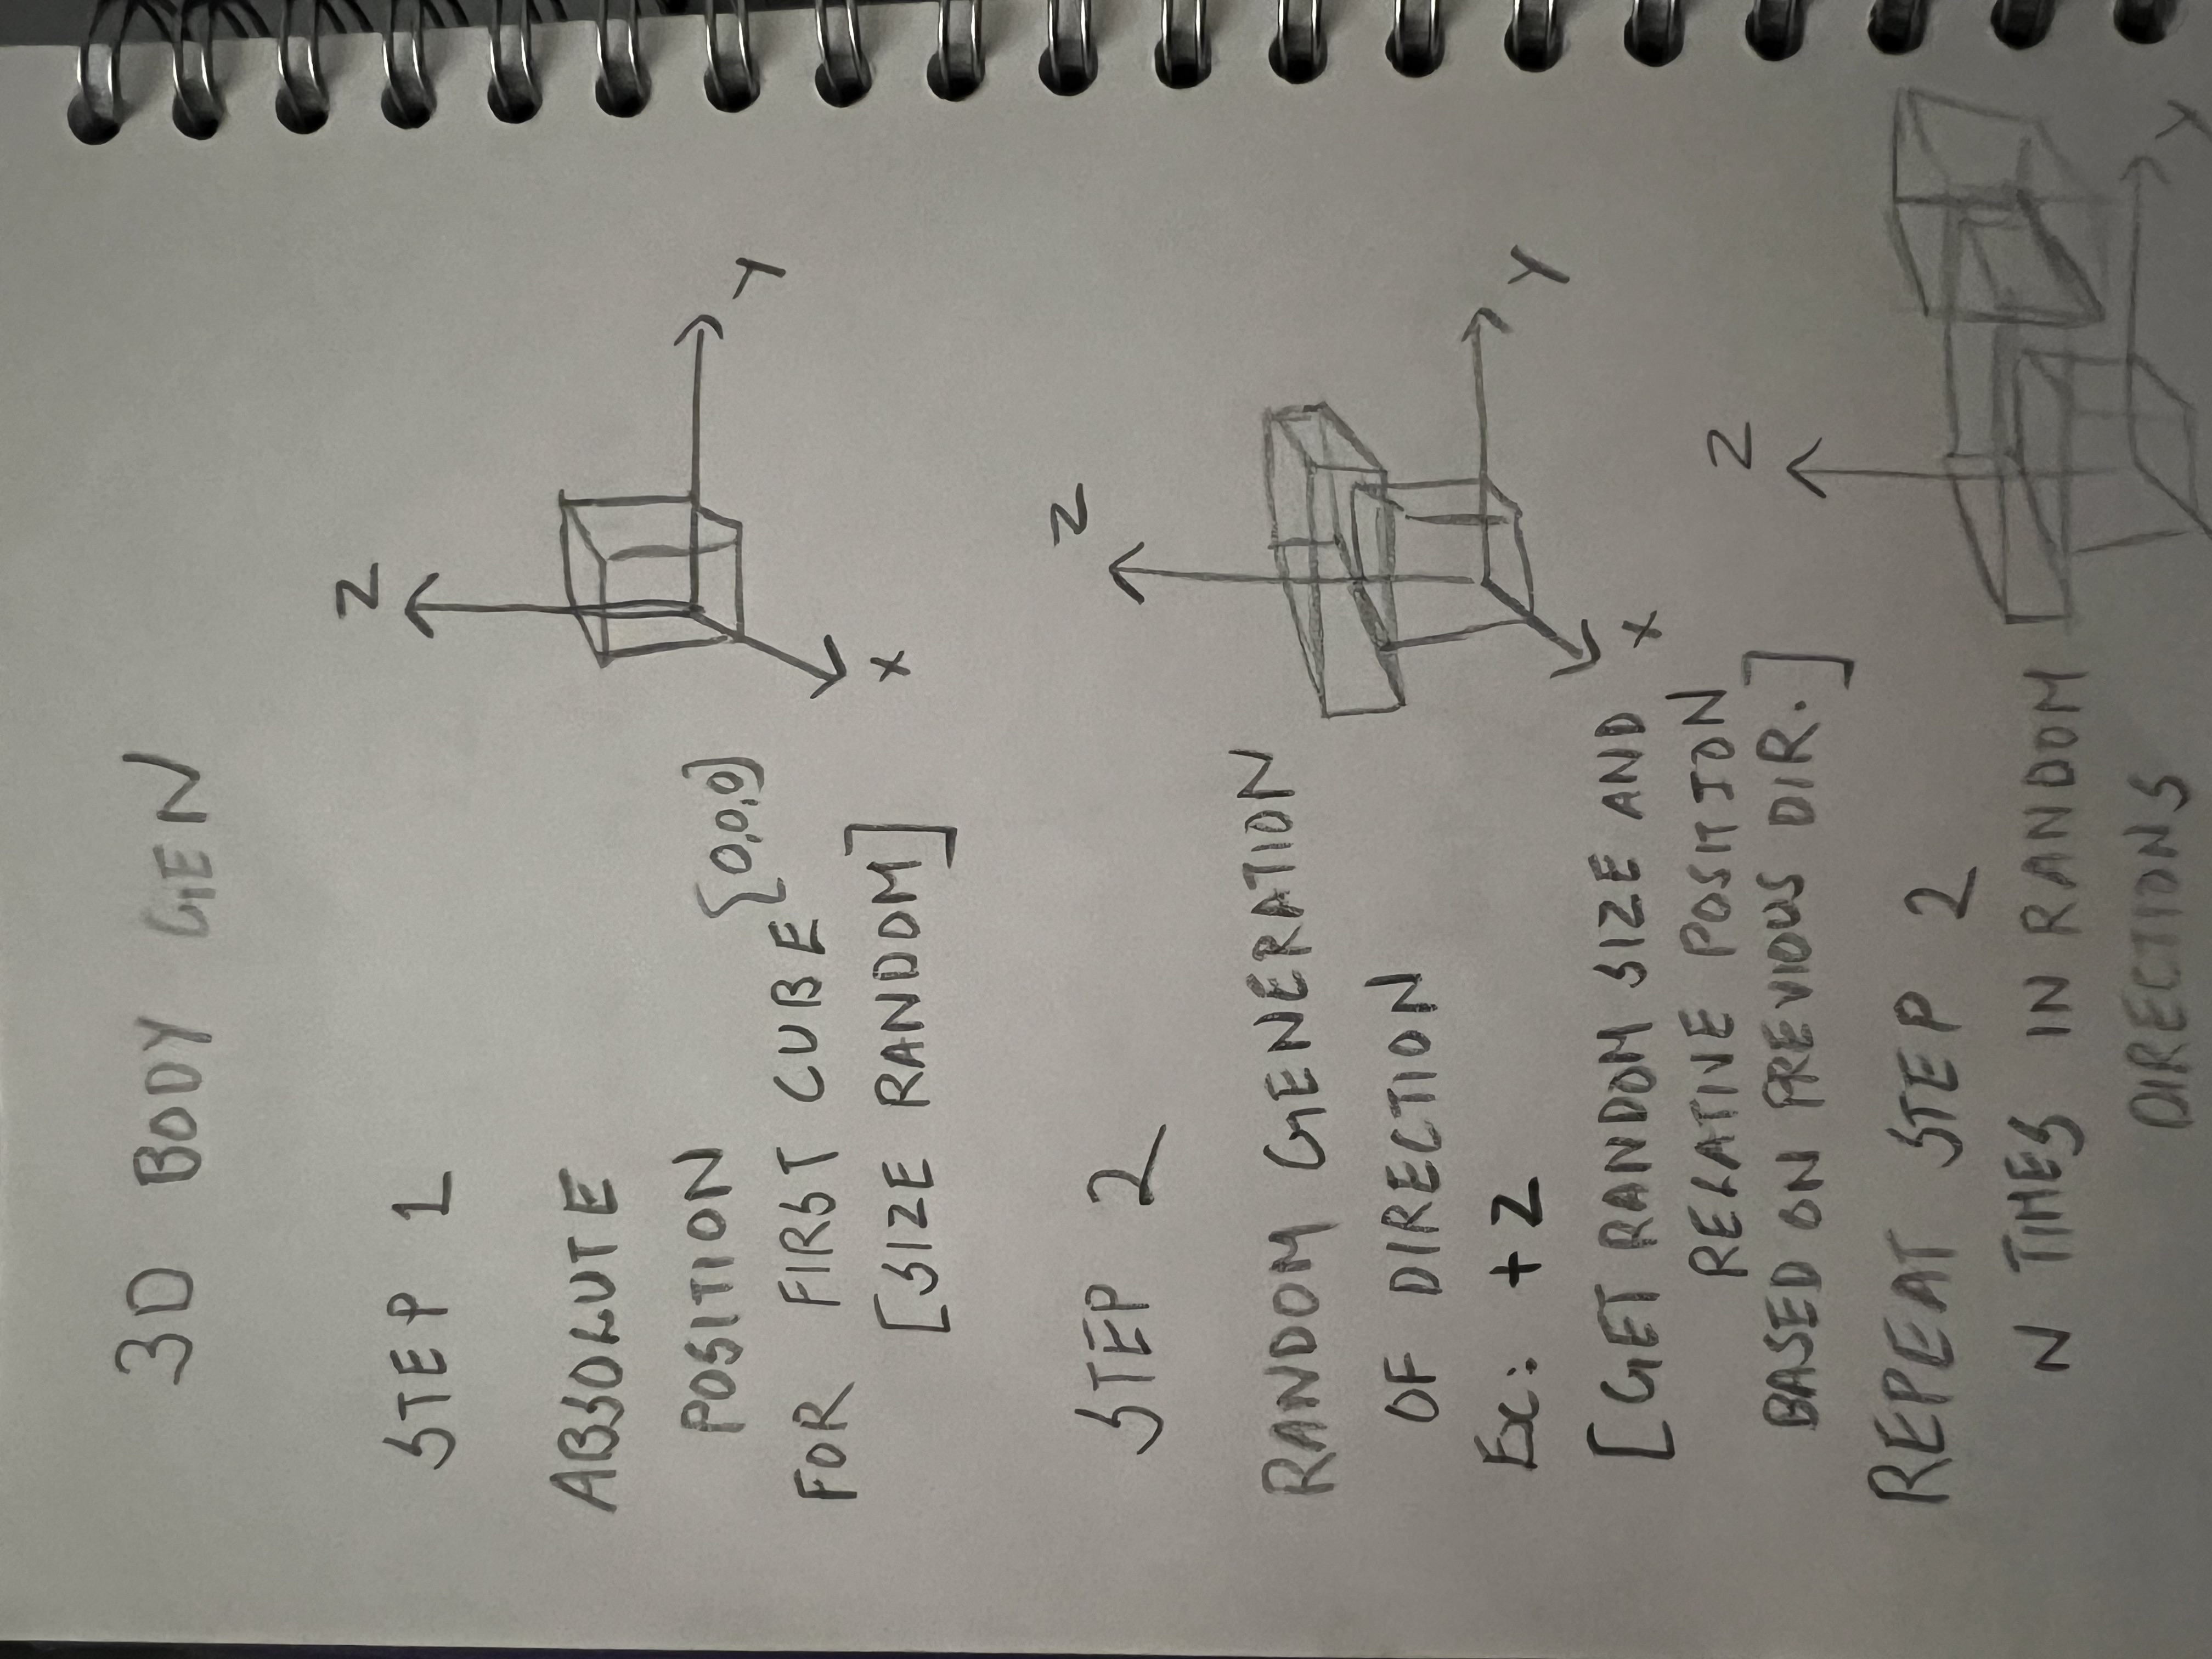 3D BODY GEN
Z
STEP 1
ABSOLUTE
POSITION
{0,0,0}
Y
FOR FIRST CUBE
X
[SIZE RANDOM]
Z
STEP 2
RANDOM GENERATION
OF DIRECTION
Ex: +Z
Y
[GET RANDOM SIZE AND
X
RELATIVE POSITION
Z
BASED ON PREVIOUS DIR.]
REPEAT STEP 2
N TIMES IN RANDOM
DIRECTIONS
Y